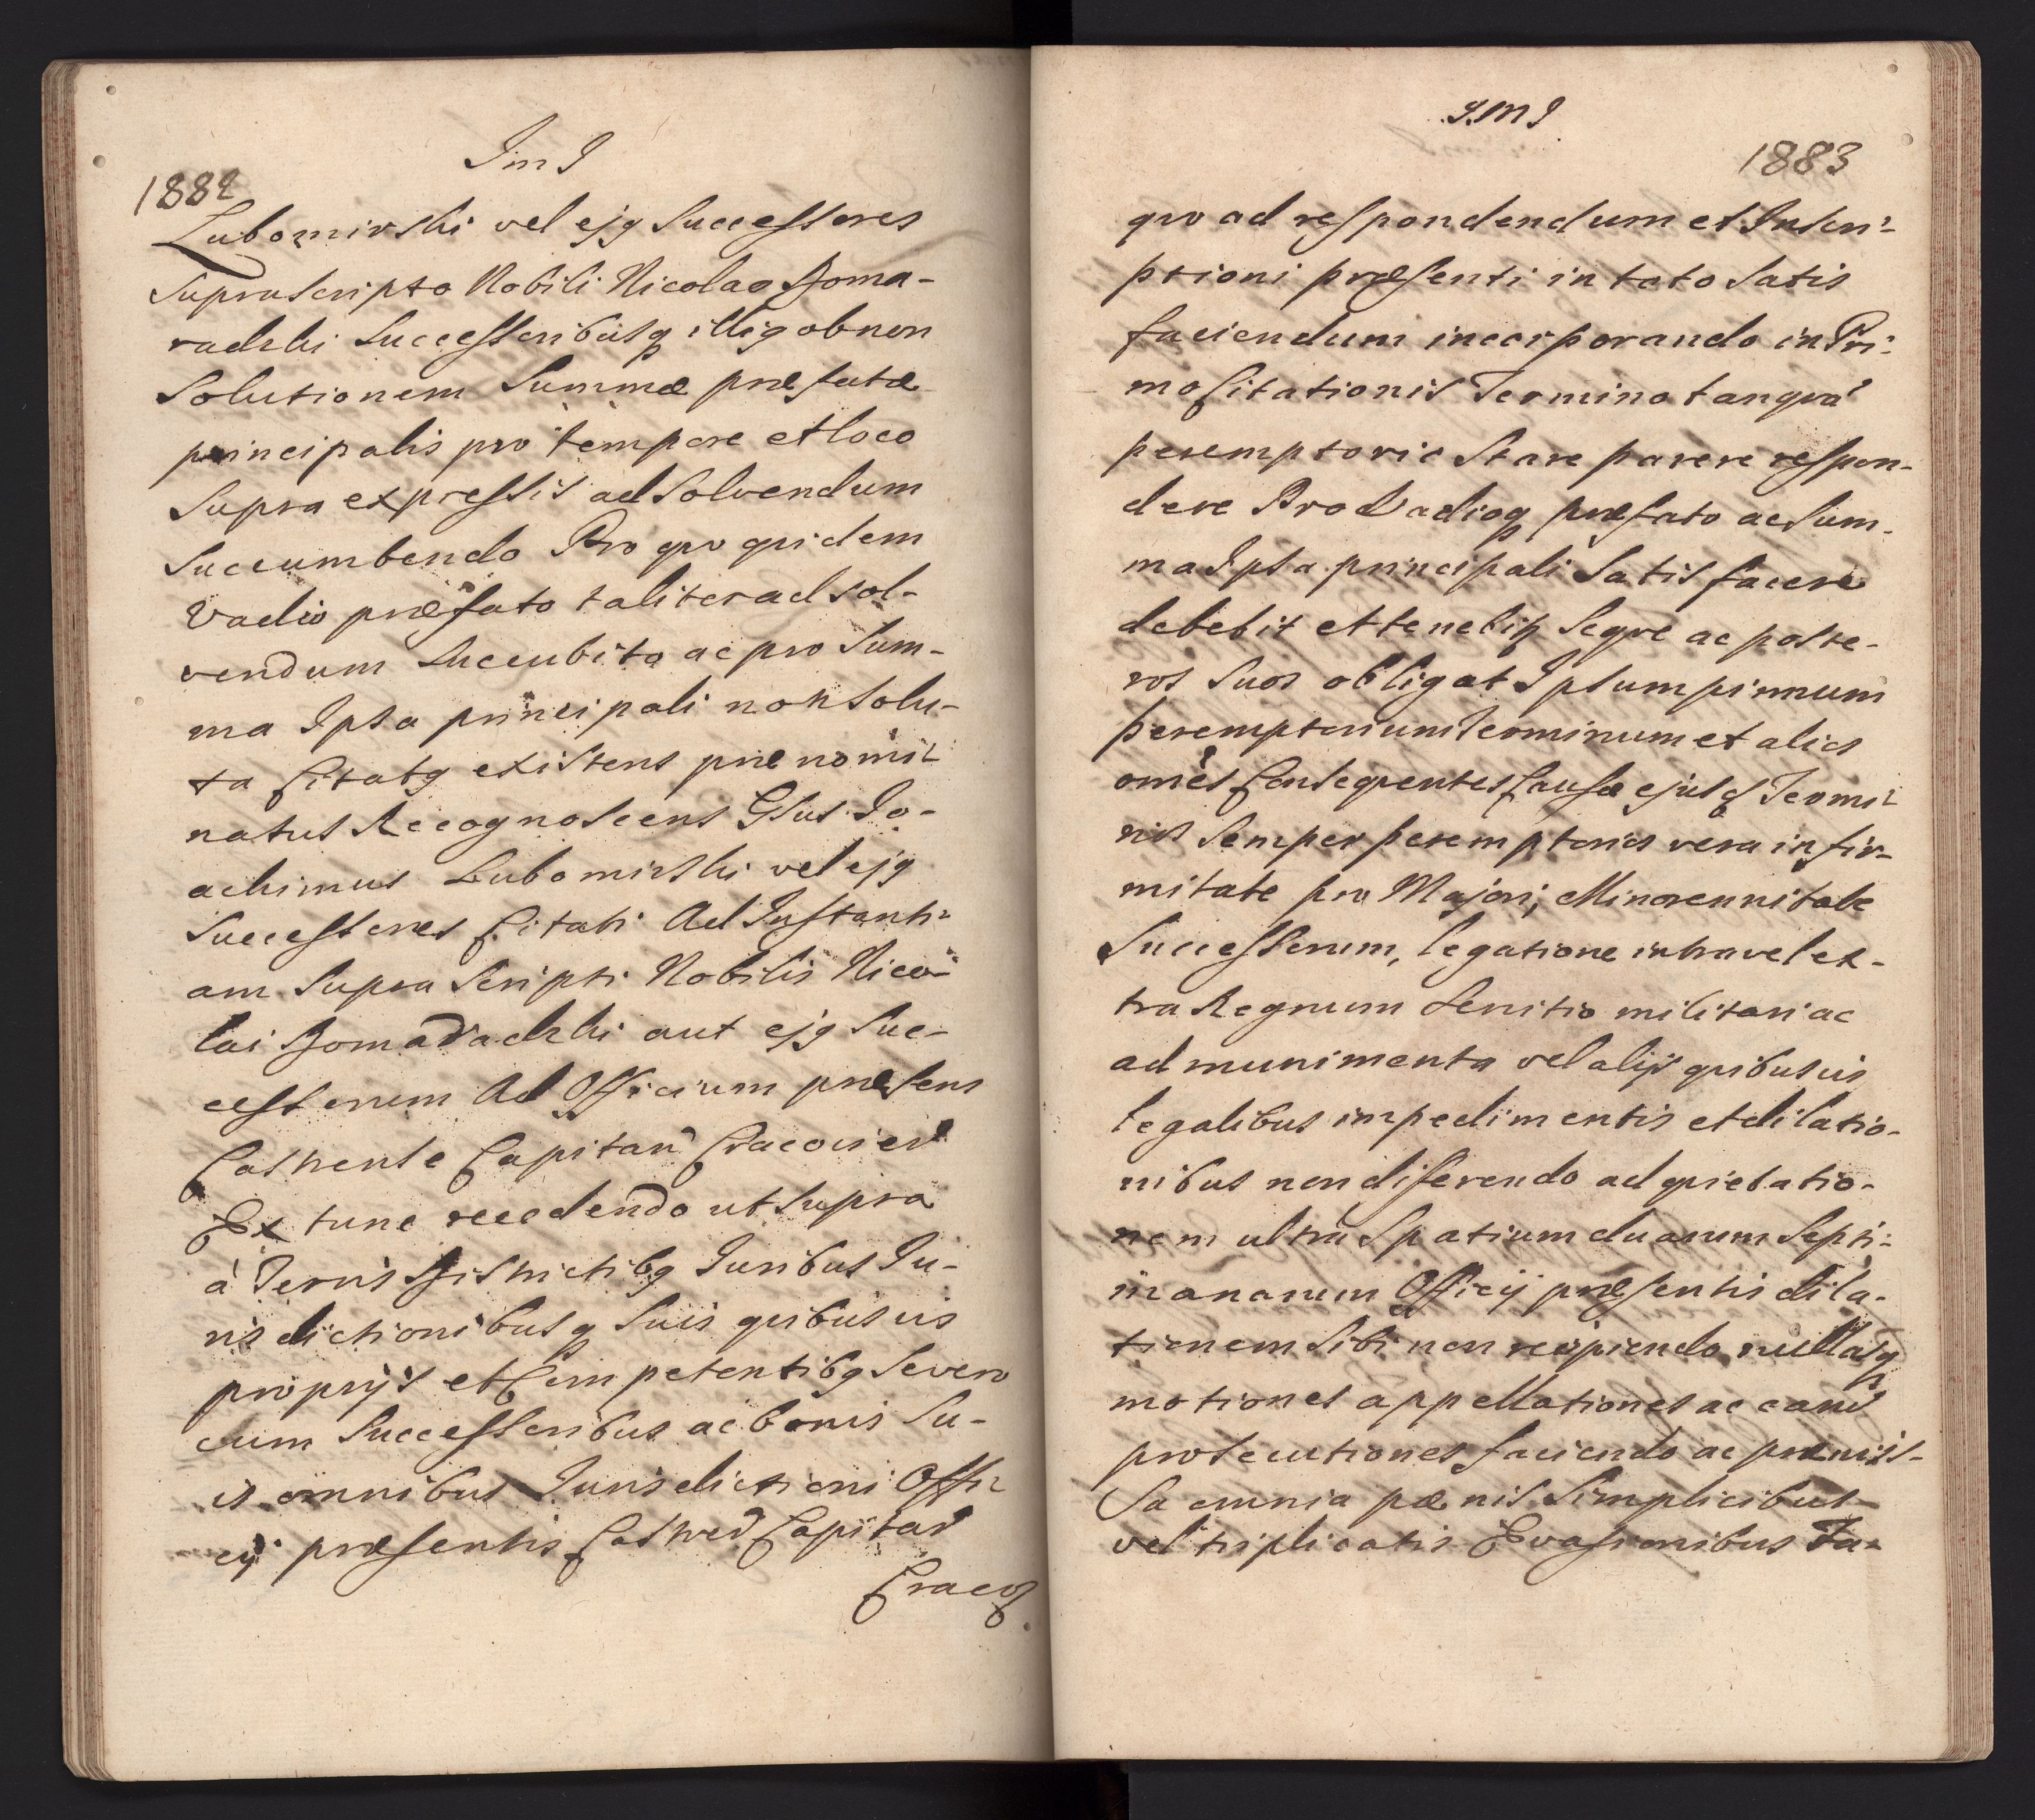 J m J
1882
Lubomirski vel ejq Successores
Suprascripto Nobili Nicolao Doma-
radzki Successoribusq illiq ob non
Solutionem Summæ præfatæ
principalis pro tempore et loco
Supra expressis ad Solvendum
Succumbendo Pro quo quidem
Vadio præfato taliter ad sol-
vendum Succubito ac pro Sum-
ma Ipsa principali non Solu-
ta Citatq existens præ nomi-
natus Recognoscens Gsus Jo-
achimus Lubomirski vel ejq
Successores Citati Ad Instanti-
am Supra Scripti Nobilis Nico-
lai Domaradzki aut ejq Suc-
cessorum Ad Officium præsens
Castrense Capitan Cracovien
Ex tunc recedendo ut Supra
à Terris Districtibq Juribus Ju-
risdictionibusq Suis quibusvis
proprijs et Competentibq Se vero
cum Successoribus ac bonis Su-
is omnibus Jurisdictioni Offi-
cij præsentis Castren Capitan
Cracov
J. M J
1883
quo ad respondendum et Inscri-
ptioni præsenti in toto Satis
faciendum incorporando in Pri-
mo Citationis Termino tanquà
peremptorie Stare parere respon-
dere Pro Vadioq præfato ac Sum-
ma Ipsa principali Satis facere
debebit et tenebiq Seque ac poste-
ros Suos obligat Ipsum primum
peremptorium Terminum et alios
omēs Consequentes Causæ ejusq Termi-
nos Semper peremptorios vera infir-
mitate pro Majori, Minorennitate
Successorum, legatione intra vel ex-
tra Regnum Servitio militari ac
ad munimenta vel alijs quibusvis
legalibus impedimentis et dilatio-
nibus non diferendo ad quietatio-
nem ultra Spatium duarum Septi-
manarum Officij præsentis dila-
tionem Sibi non recipiendo nullasq
motiones appellationes ac earū
prosecutiones faciendo ac præmis-
Sa omnia pænis Simplicibus
vel triplicatis Evasionibus Ta-